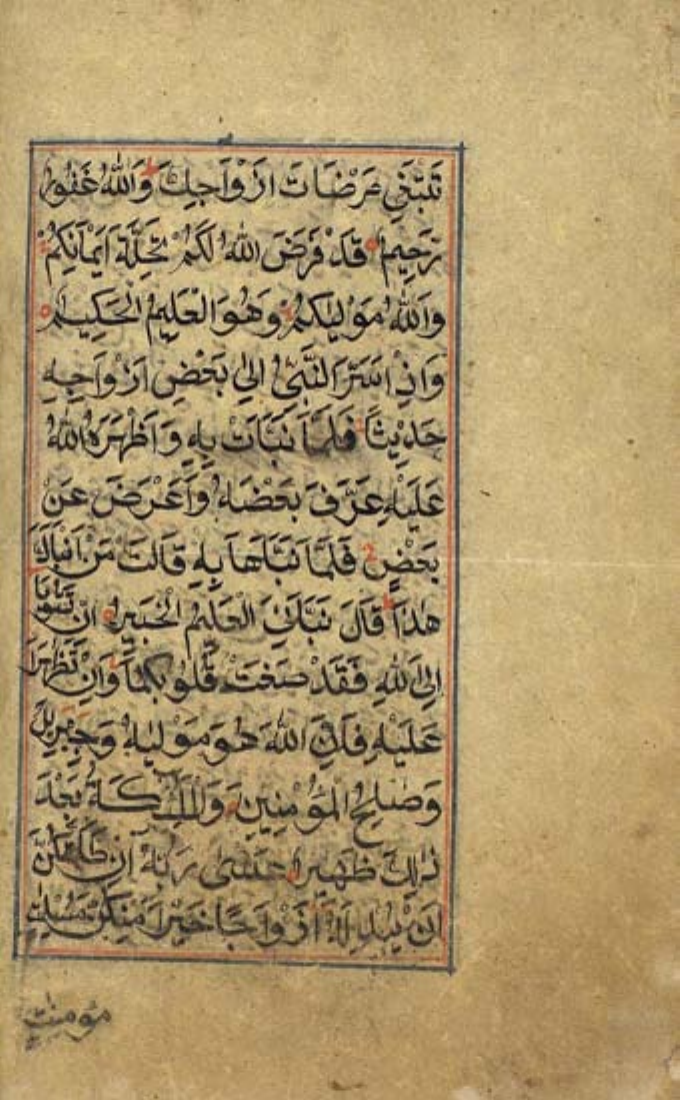 تَبْتَغِي مَرْضَاتَ اَزْوَاجِكَ وَاللّٰهُ غَفُورٌ
رَحِيمٌ قَدْ فَرَضَ اللّٰهُ لَكُمْ تَحِلَّةَ اَيْمَانِكُمْ
وَاللّٰهُ مَوْلٰيكُمْ وَهُوَ الْعَلِيمُ الْحَكِيمُ
وَاِذْ اَسَرَّ النَّبِيُّ اِلٰى بَعْضِ اَزْوَاجِهِ
حَدِيثًا فَلَمَّا نَبَّاَتْ بِهِ وَاَظْهَرَهُ اللّٰهُ
عَلَيْهِ عَرَّفَ بَعْضَهُ وَاَعْرَضَ عَنْ
بَعْضٍ فَلَمَّا نَبَّاَهَا بِهِ قَالَتْ مَنْ اَنْبَاَكَ
هٰذَا قَالَ نَبَّاَنِيَ الْعَلِيمُ الْخَبِيرُ اِنْ تَتُوبَا
اِلَى اللّٰهِ فَقَدْ صَغَتْ قُلُوبُكُمَا وَاِنْ تَظَاهَرَا
عَلَيْهِ فَاِنَّ اللّٰهَ هُوَ مَوْلٰيهُ وَجِبْرِيلُ
وَصَالِحُ الْمُؤْمِنِينَ وَالْمَلٰٓئِكَةُ بَعْدَ
ذٰلِكَ ظَهِيرٌ عَسٰى رَبُّهُ اِنْ طَلَّقَكُنَّ
اَنْ يُبْدِلَهُ اَزْوَاجًا خَيْرًا مِنْكُنَّ مُسْلِمٰتٍ
مؤمنٰت